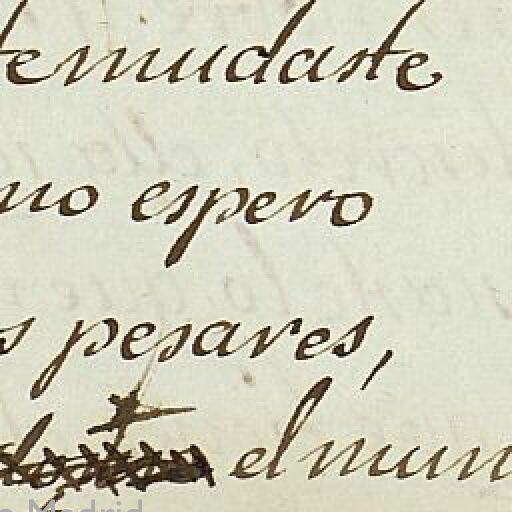 temudaste
no espero
s pesares,
el mun
Madrid